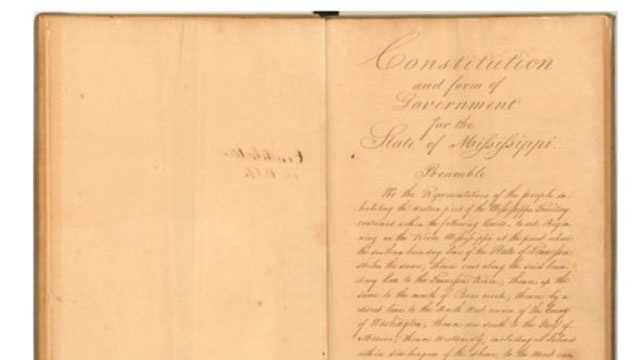 Constitution
and form of
Government
for the
State of Mississippi
Preamble
We the Representatives of the people in-
habiting the western part of the Mississippi Territory
contained within the following limits, to wit: Begin-
ning on the River Mississippi at the point where
the southern boundary line of the State of Tennessee
strikes the same; thence east along the said boun-
dary line to the Tennessee River; thence up the
same to the mouth of Bear creek; thence by a
direct line to the North West corner of the County
of Washington; thence due south to the Gulf of
Mexico; thence westwardly, including all Islands
within six leagues of the shore, to the most